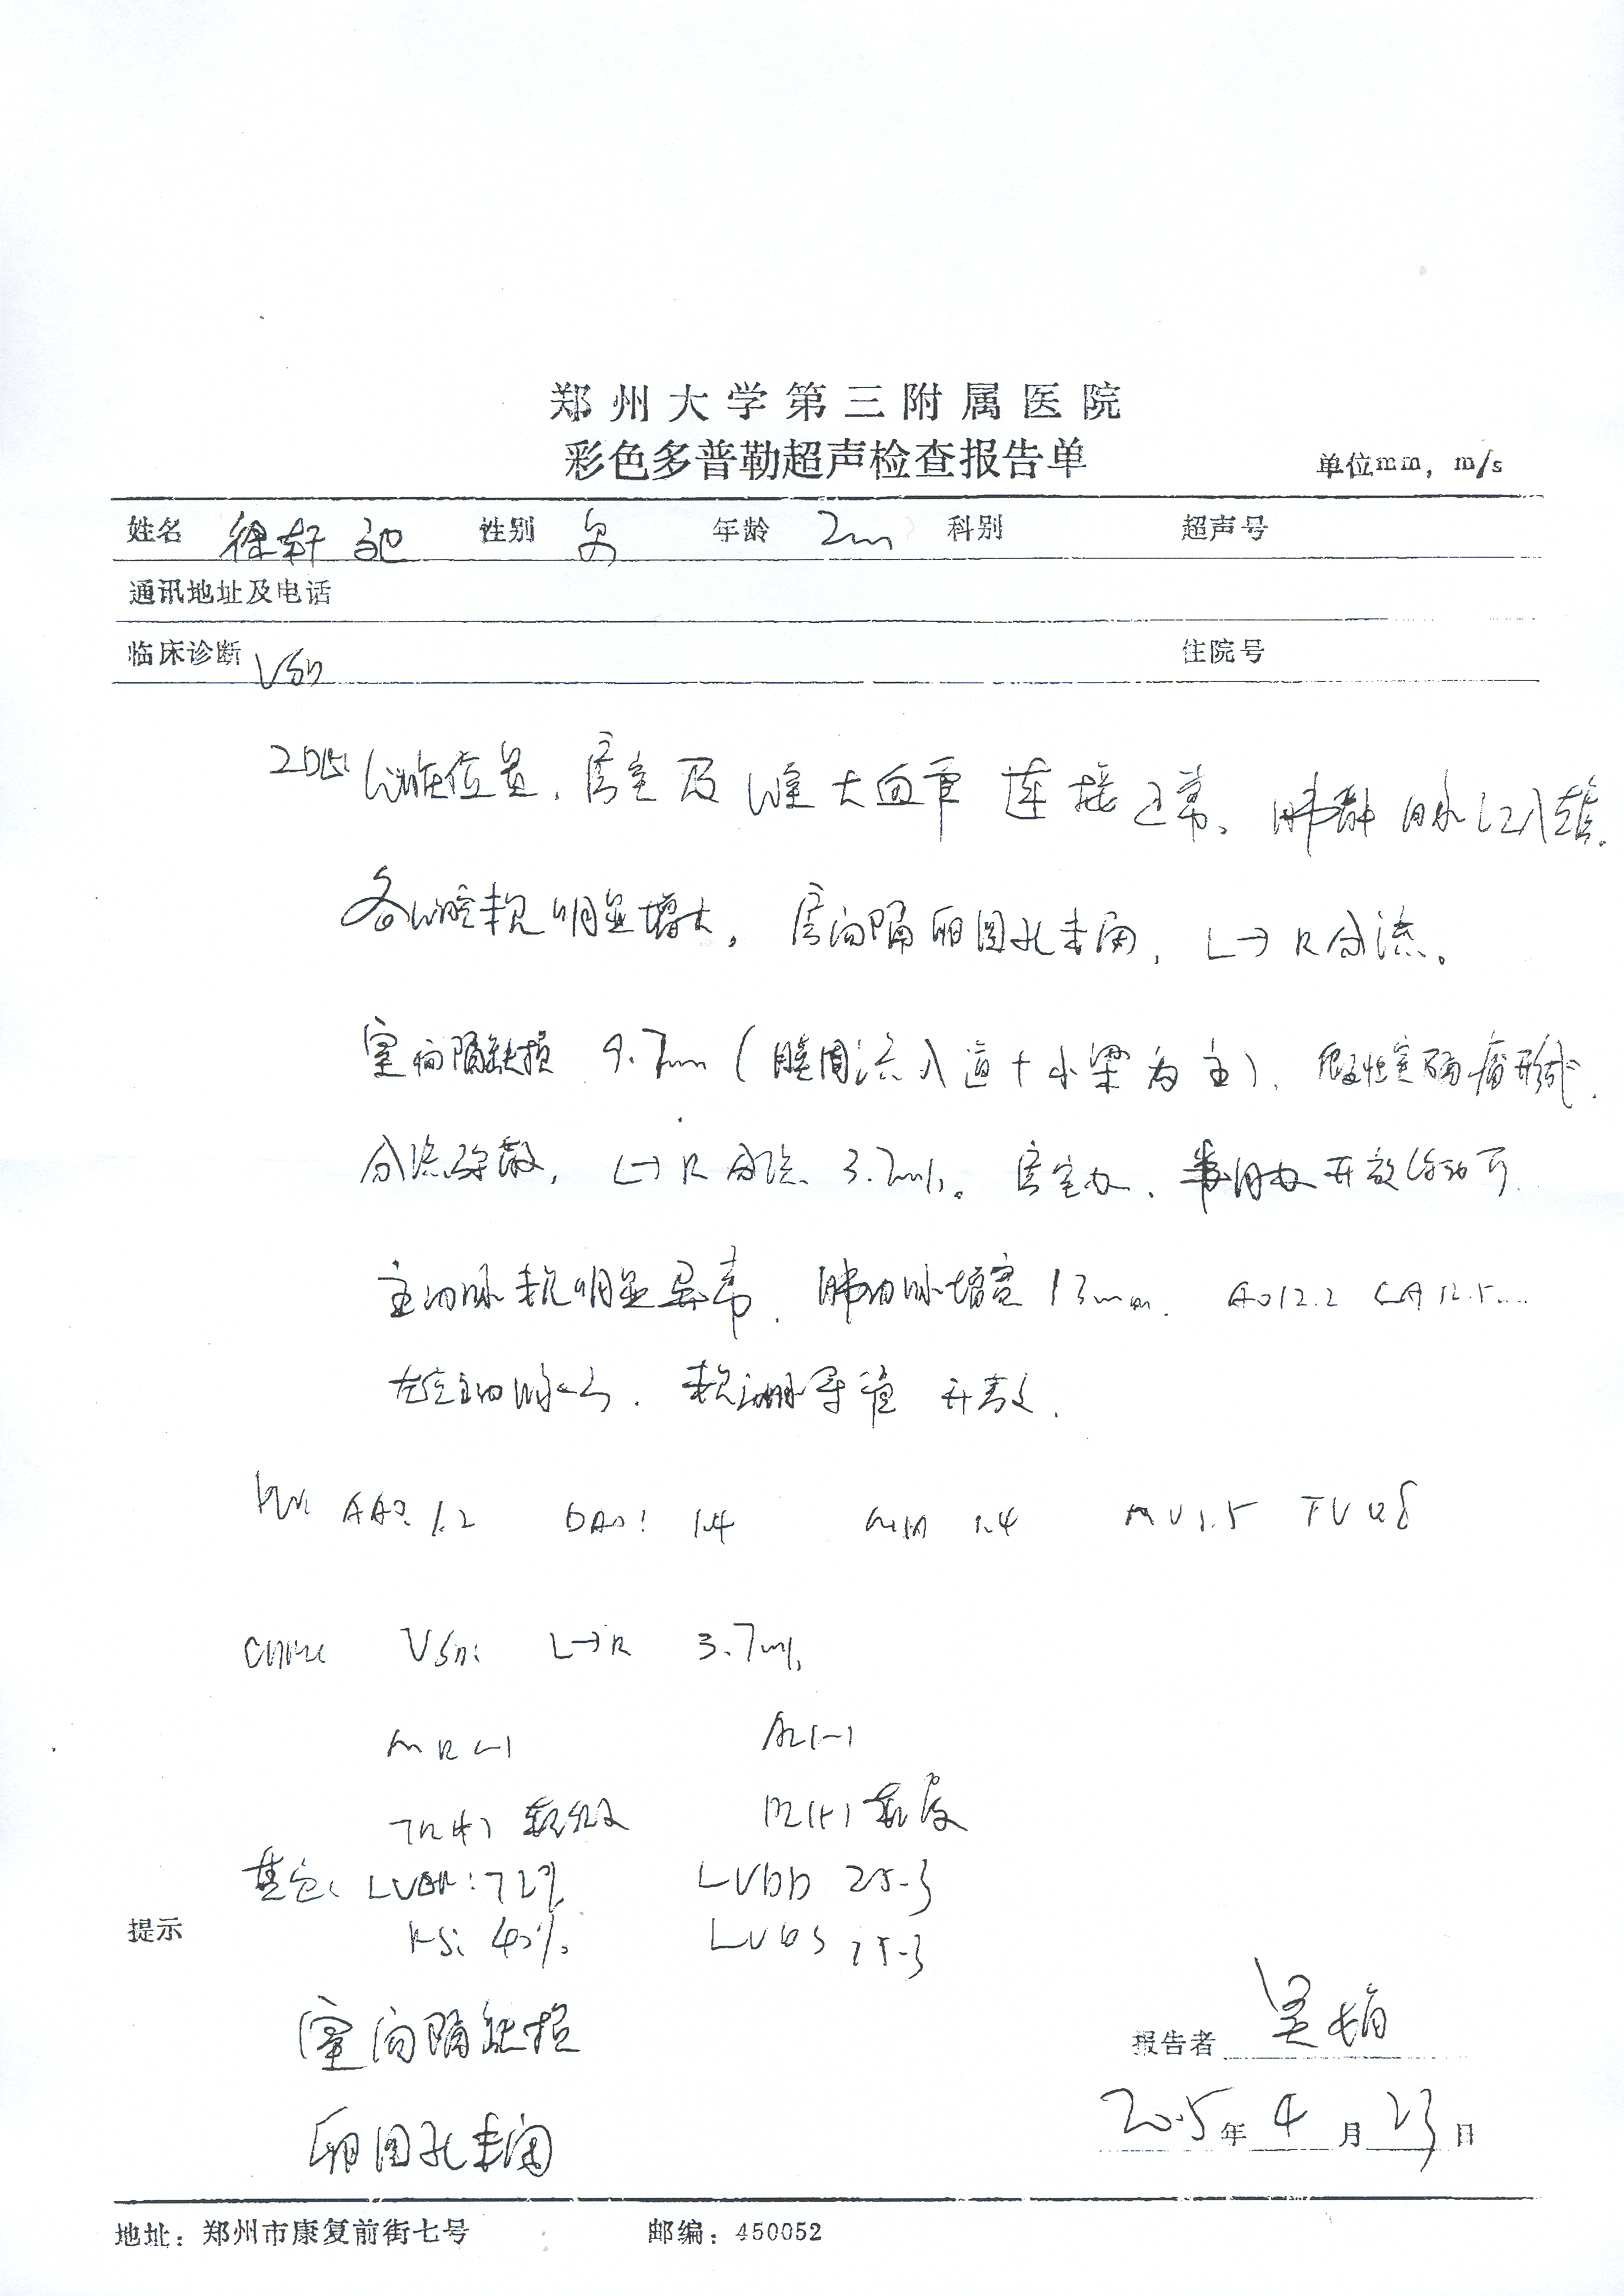 郑州大学第三附属医院
彩色多普勒超声检查报告单
单位mm, m/s
姓名 徐轩驰 性别 男 年龄 2m 科别 超声号
通讯地址及电话
临床诊断 VSD 住院号
2DE: 心脏位置、房室及心室大血管连接正常。肺静脉回入左房。
各心腔未见明显增大。房间隔卵圆孔未闭, L→R分流。
室间隔缺损 9.7mm (膜周流入道+小梁为主), 假性室隔瘤形成.
分流弥散, L→R分流 3.7m/s。房室瓣、半月瓣开放活动可.
主动脉未见明显异常. 肺动脉增宽13mm. AO12.2 LA12.5
左位主动脉弓. 未见动脉导管开放.
PW: AAO: 1.2 DAO: 1.4 MPA 1.4 MV1.5 TV 0.8
CDFI: VSD: L→R 3.7m/s
MR(-) AR(-)
TR(+) 轻度 PR(+) 轻度
其它: LVEF: 72% LVDD 25.3
提示 FS: 40% LVDS 15.3
室间隔缺损
卵圆孔未闭
报告者 吴娟
2015年4月23日
地址: 郑州市康复前街七号 邮编: 450052